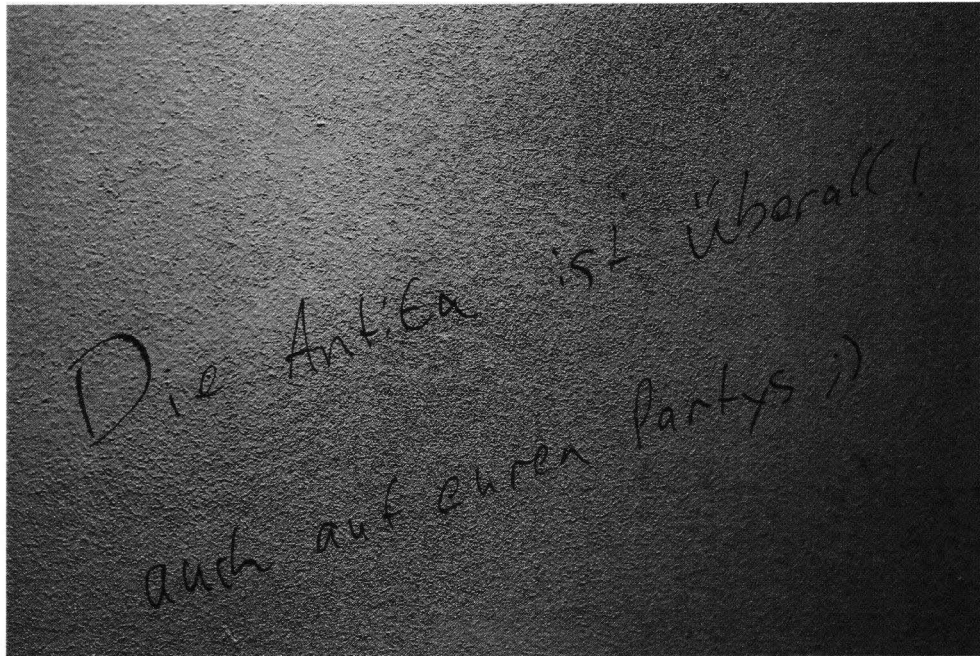 Die Antifa ist überall!
auch auf euren Partys ;)